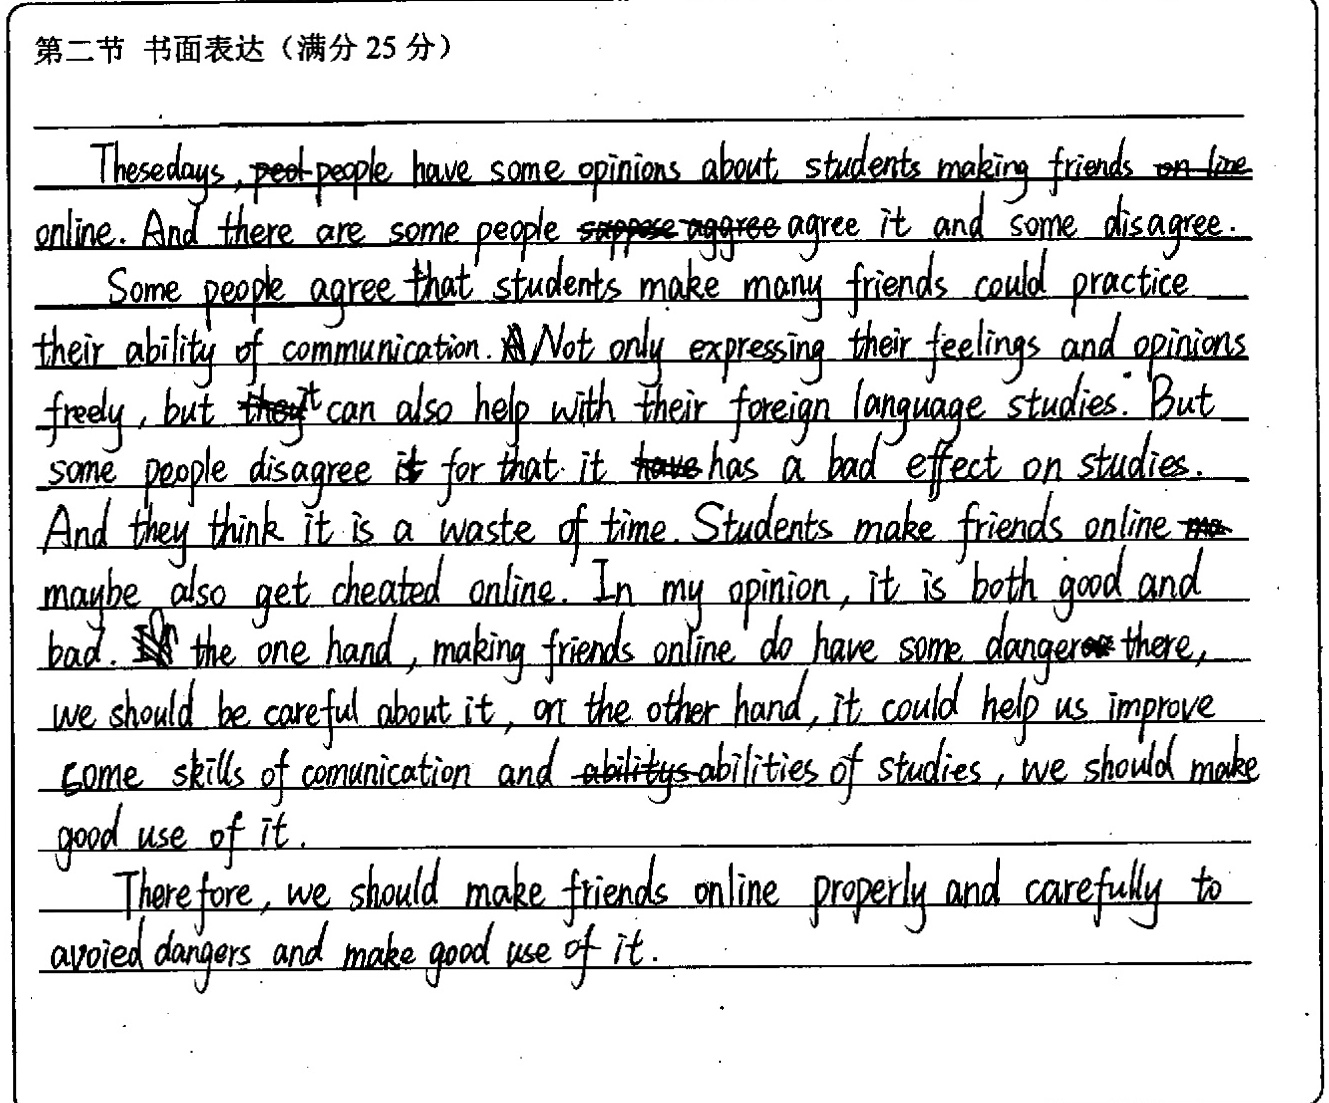 第二节 书面表达（满分 25 分）
Thesedays, people have some opinions about students making friends
online. And there are some people agree it and some disagree.
Some people agree that students make many friends could practice
their ability of communication. Not only expressing their feelings and opinions
freely, but it can also help with their foreign language studies. But
some people disagree it for that it has a bad effect on studies.
And they think it is a waste of time. Students make friends online
maybe also get cheated online. In my opinion, it is both good and
bad. On the one hand, making friends online do have some danger there,
we should be careful about it, on the other hand, it could help us improve
some skills of comunication and abilities of studies, we should make
good use of it.
Therefore, we should make friends online properly and carefully to
avoied dangers and make good use of it.